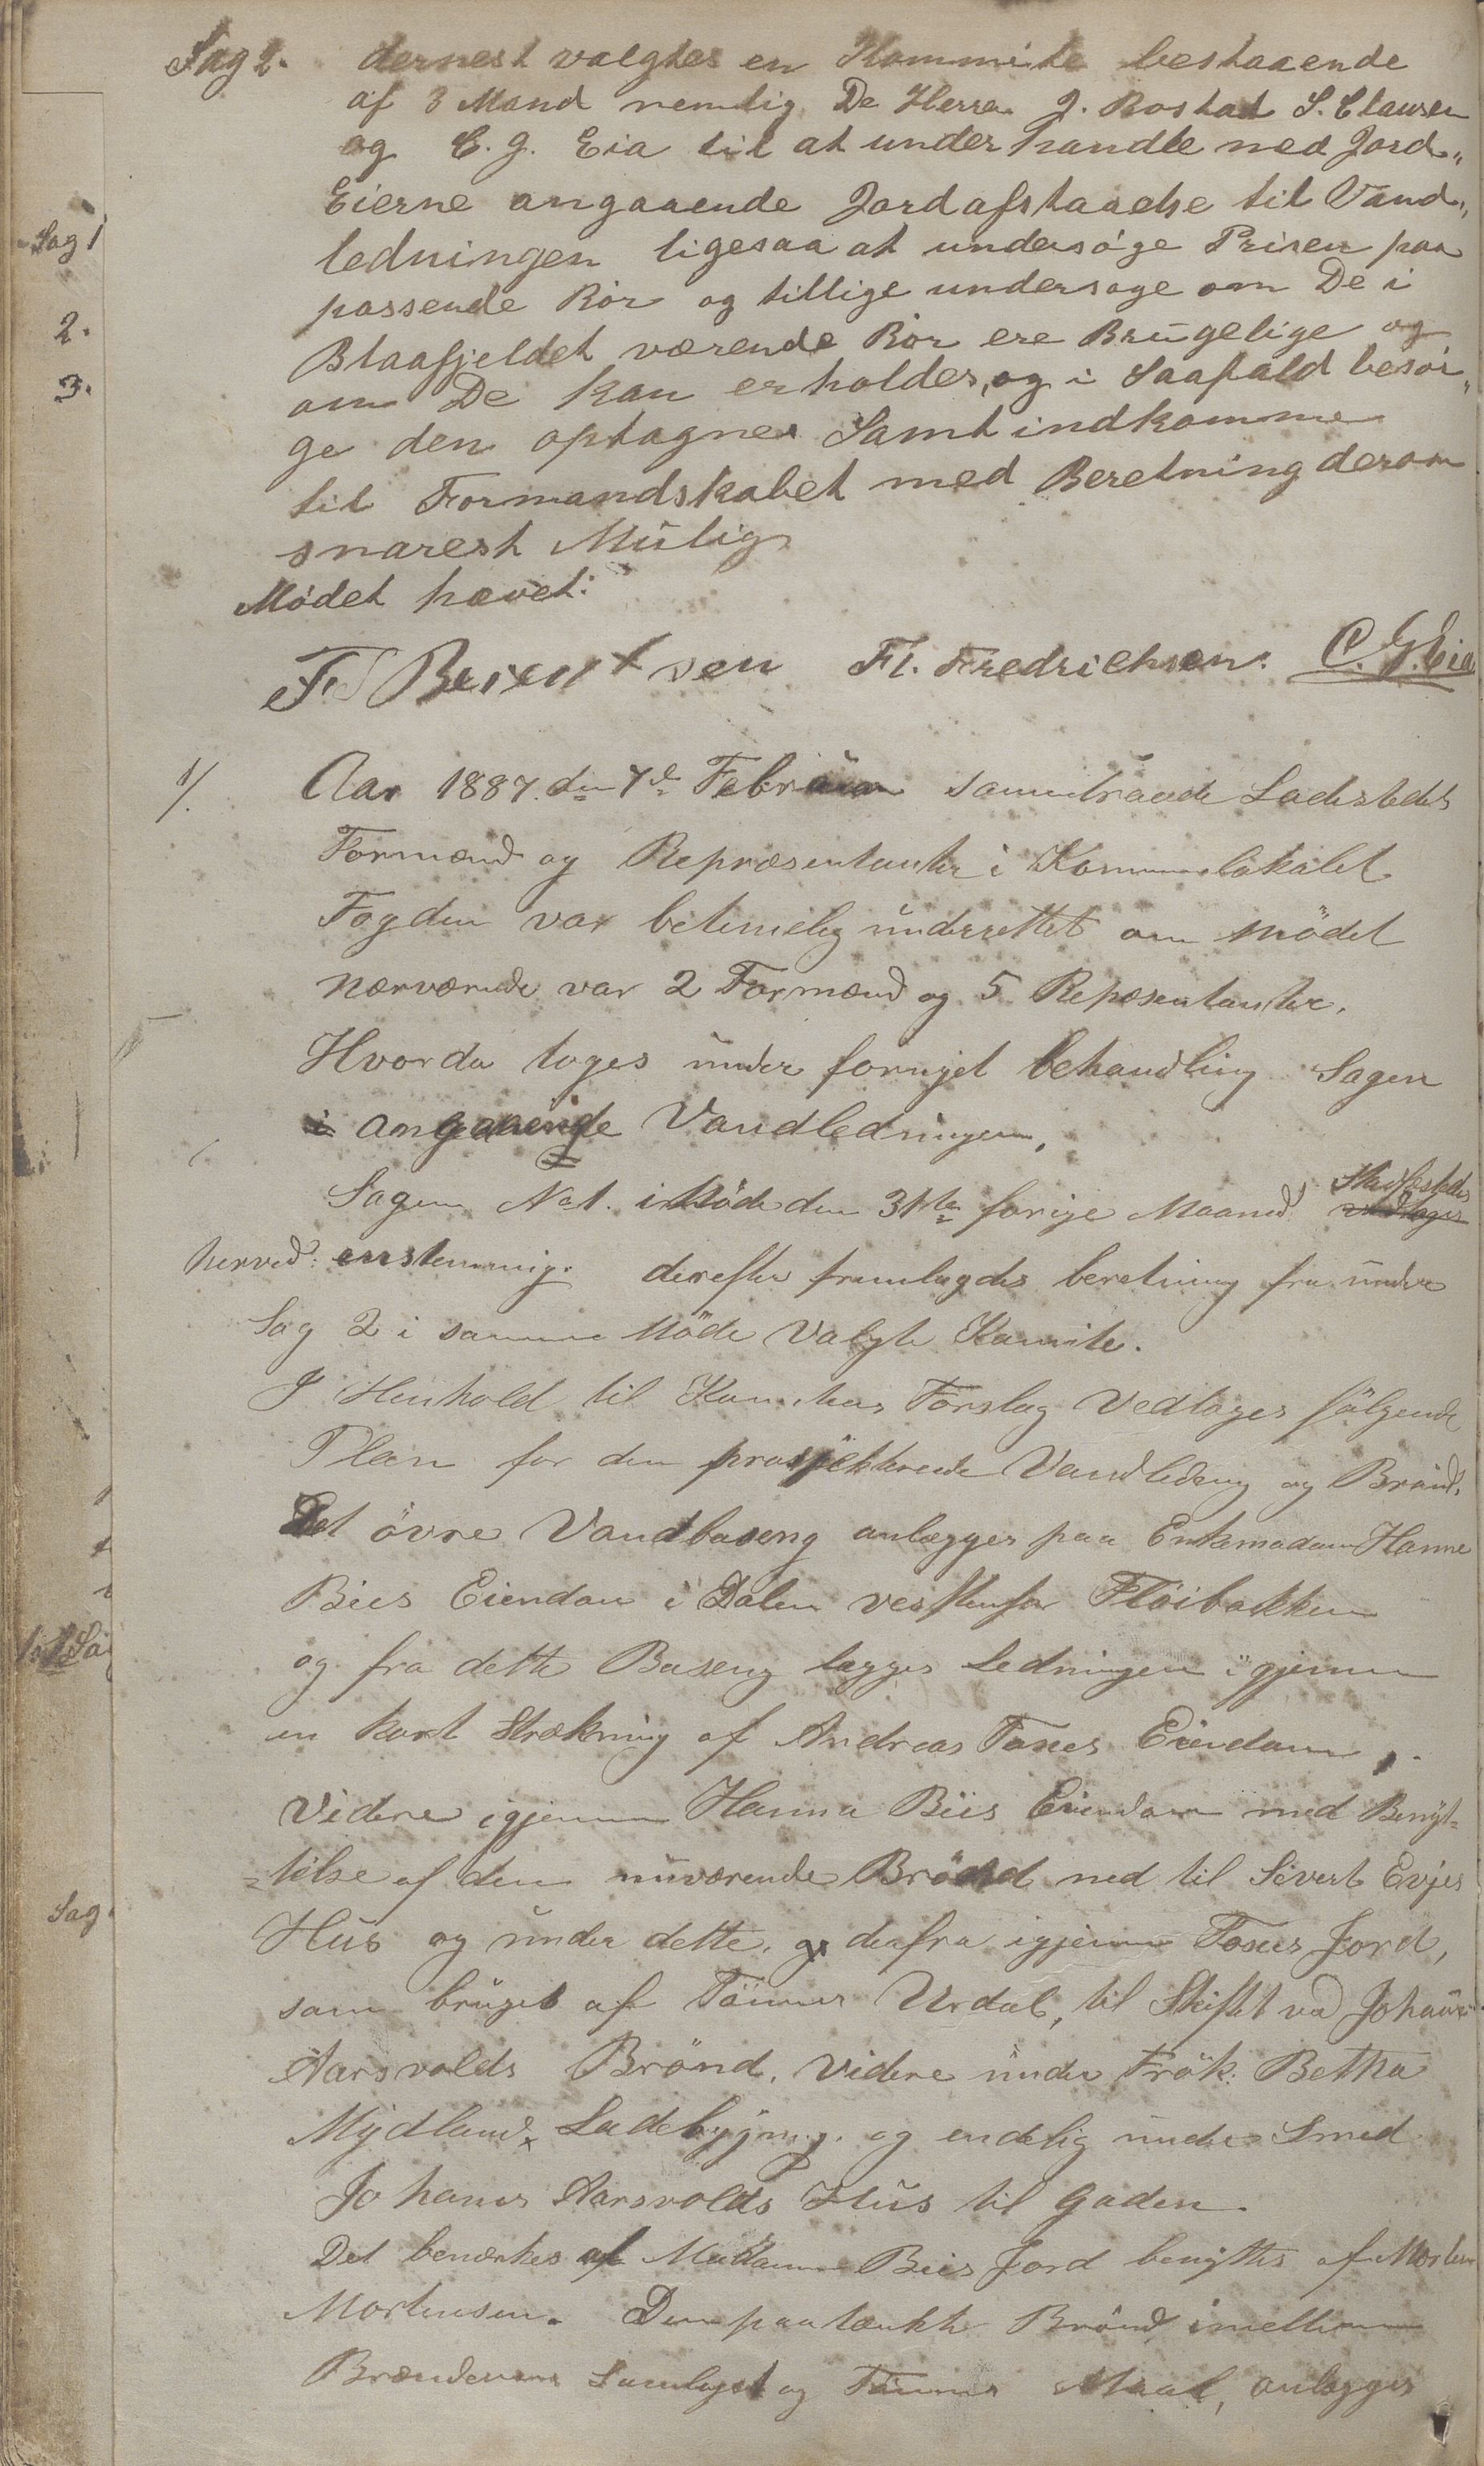 Sag 2. dernest valgtes en Kommite bestaaende
af 3 Mand nemlig De Herrer J. Rostad S. Clausen
og C. G. Eia til at underhandle med Jord„
Eierne angaaende Jordafstaaelse til Vand„
ledningen ligesaa at undersøge Prisen paa
passende Rör og tillige undersøge om De i
Blaafjeldet værende Rör ere Brugelige og
om De kan erholdes, og i Saafald besör„
ge den optagnes Samt indkomme
til Formandskabet med Beretning derom
snarest Mulig
Mödet hævet:
Fl. Fredrichsen. C. G. Eia
1/. Aar 1887 den 7de Februar samentraade Ladestedets
Formænd og Repræsentanter i Kommunelokalet
Fogden var betimelig underrettet om mödet
nærværende var 2 Formænd og 5 Repæsentanter.
Hvorda toges under fornyet behandling Sagen
i angaaende Vandledningen.
Sagen No 1. i Möde den 31te forige Maaned Stadfæstedes
vedtages
herved: enstemmig. derefter fremlagdes beretning fra under
Sag 2 i samme Möde Valgte Komite.
I Henhold til Komiteens Forslag Vedtoges fölgende
Plan for den prosjekterede Vandledning og Brönd.
Det övre Vandbaseng anlægges paa Enkemadam Hanne
Biis Eiendom i Dalen vestenfor Flöibakken
og fra dette Baseng lægges Ledningen igjennem
en kort Strækning af Andreas Foses Eiendom,
Videre igjennem Hanna Biis Eiendom med Benyt=
=telse af den nuværende Brönd ned til Sivert Evjes
Hus og under dette. og derfra igjennem Foses Jord,
som bruges af Tönnes Urdal, til Skiftet ved Johannes
Aarsvolds Brönd. Videre under Frök. Betha
Mydlands Ladebygning. og endelig under Smed
Johanes Aarsvolds Hus til Gaden.
Det bemærkes at Madame Biis Jord benyttes af Morten
Mortensen. Den paatænkte Brönd imellem
og Tönnes anlægges
Sag 1
2.
3.
Sag